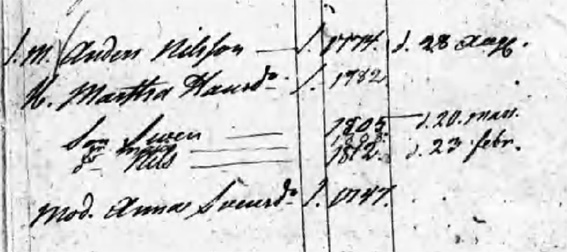 S. M. Anders Nilsson f. 1774. d. 28 Aug.
H. Martha Hansdr. f. 1782
Son Swen 1805 d. 20. mars.
Sn Nils 1812. d. 23 febr.
Mod. Anna Svensdr f. 1747.